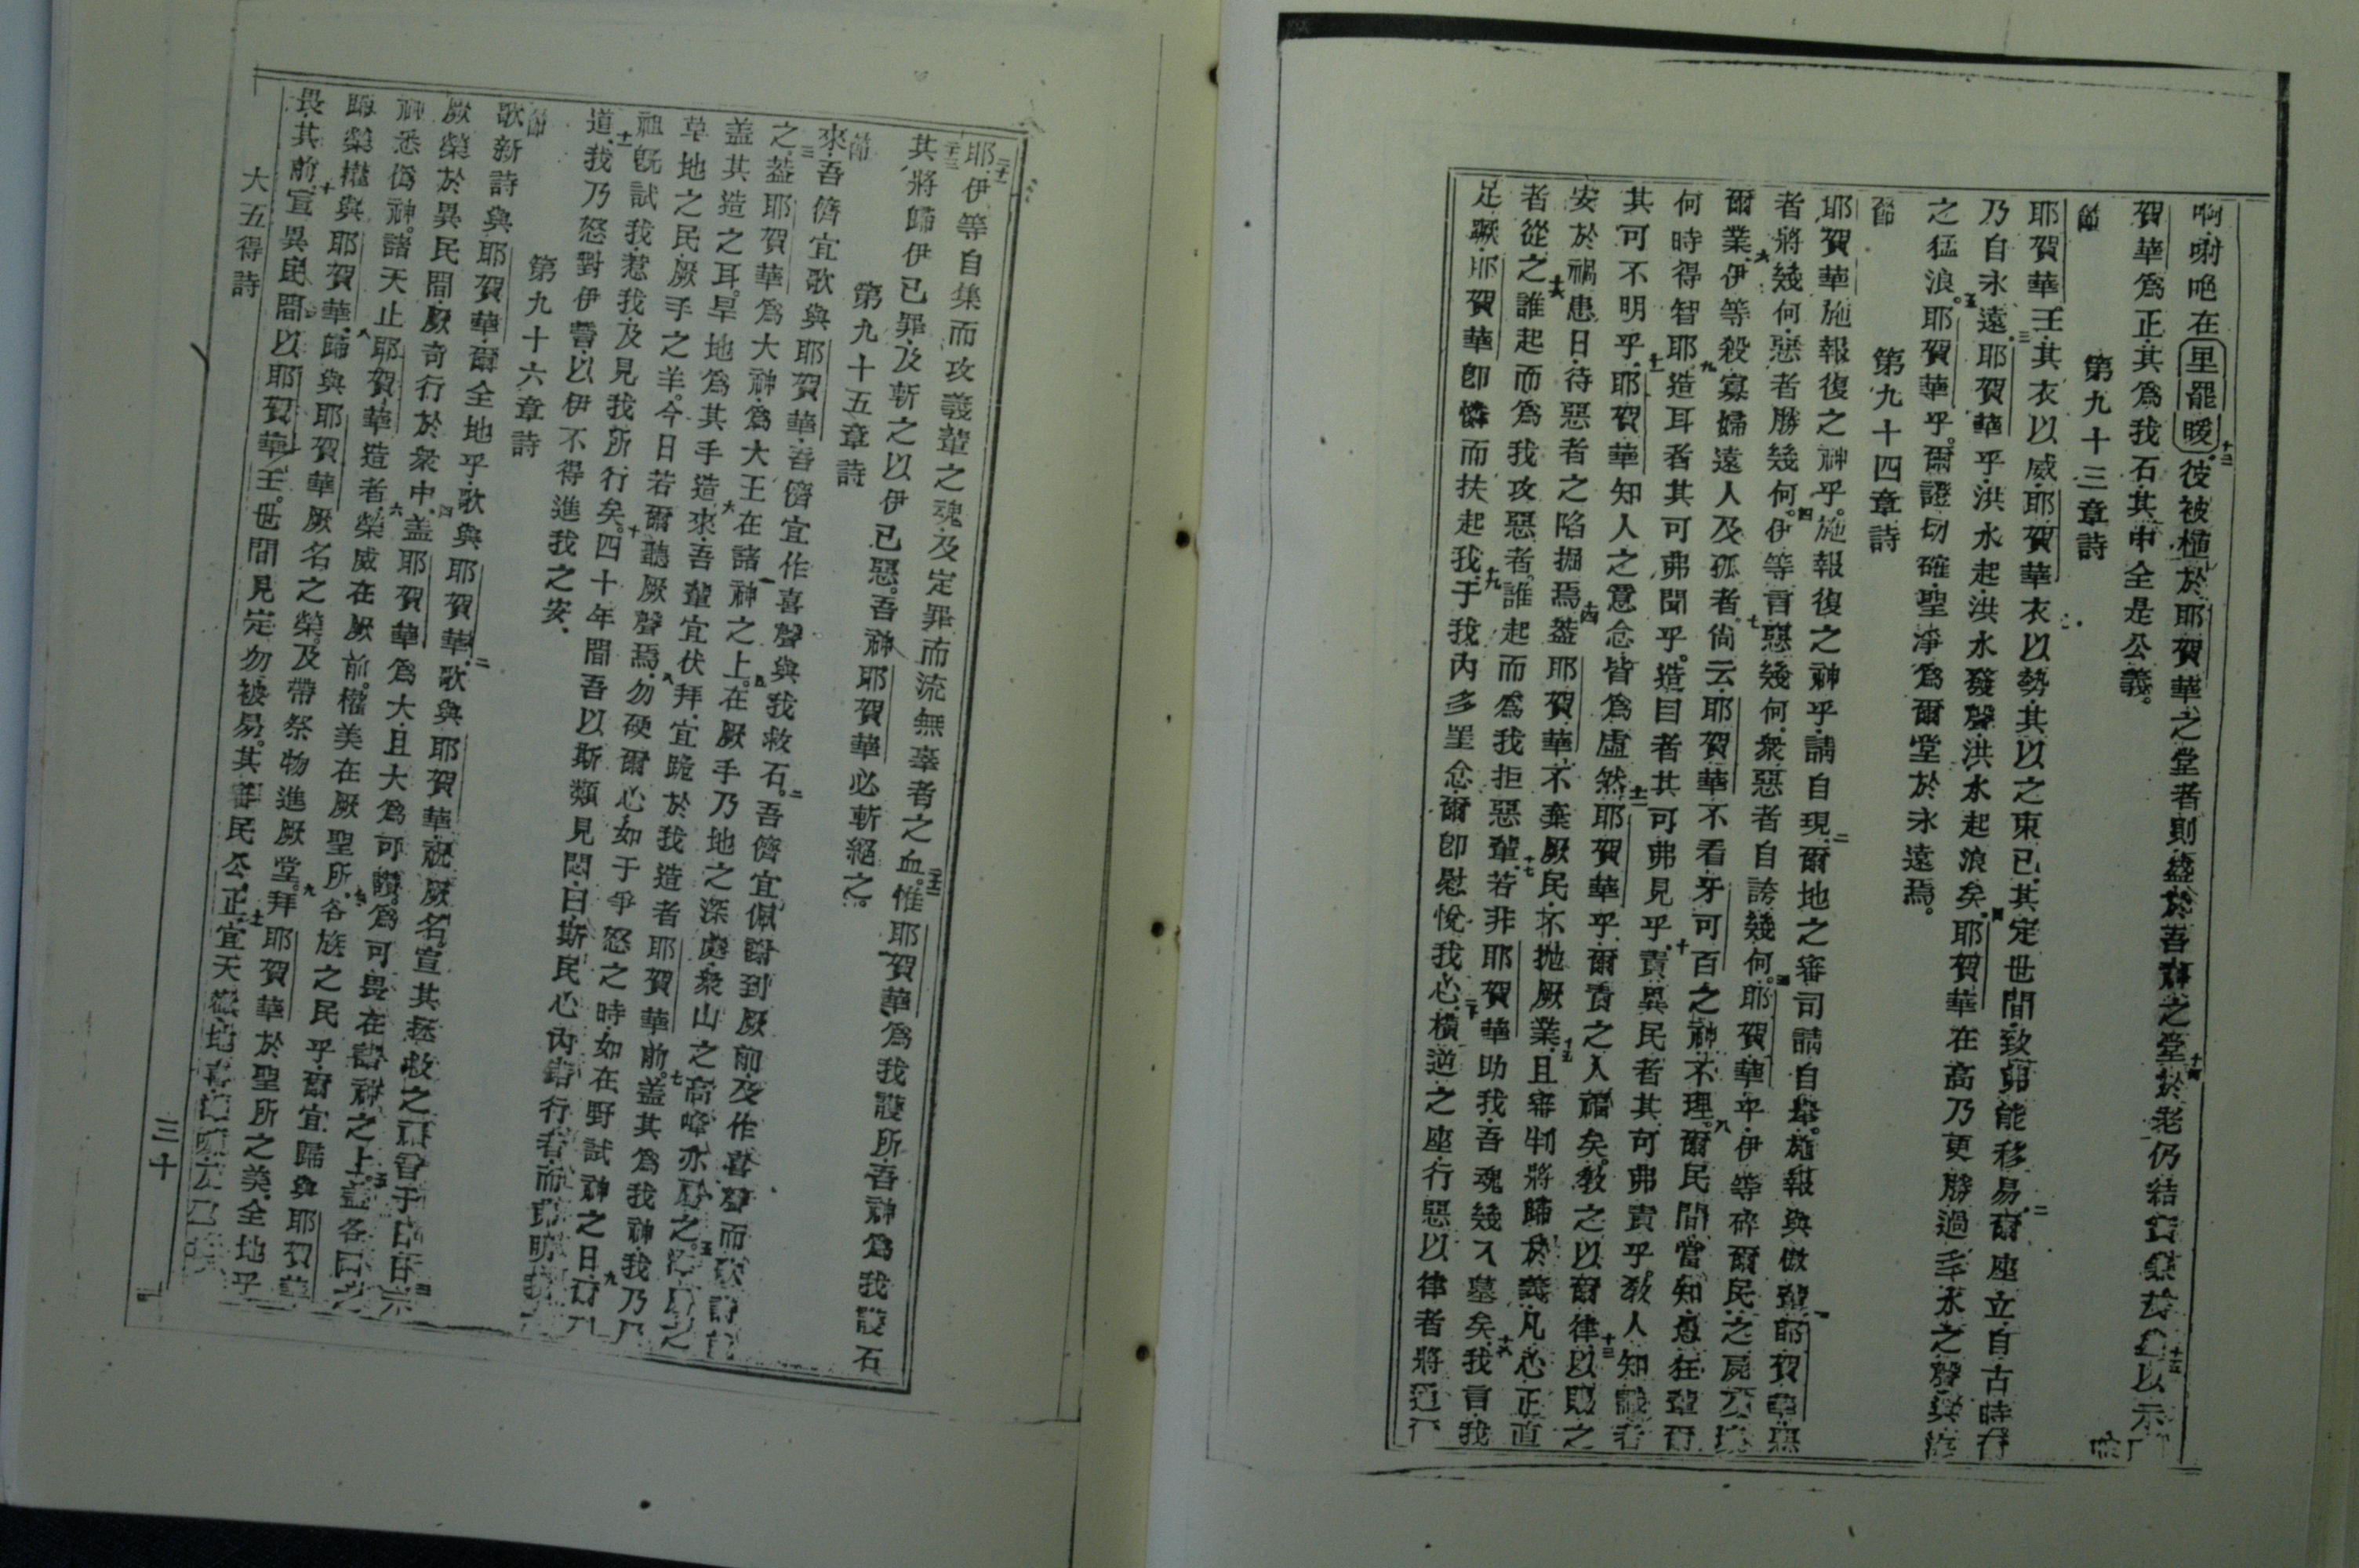 啊唎唈在里罷暖彼被植於耶賀華之堂者則盛於吾神之堂於老仍結以示
賀華爲正其爲我石其中全是公義
第九十三章詩
節
耶賀華王其衣以威耶賀華衣以勢其以之束已其定世間致弗能移易爾座立自古時
乃自永遠耶賀華乎洪水起洪水發聲洪水起浪矣耶賀華在高乃更勝過多水之聲與海
之猛浪耶賀華乎爾證切確聖淨爲爾堂於永遠焉
第九十四章詩
節
耶賀華施報復之神乎施報復之神乎請自現二爾地之審司請自舉施報與傲輩耶賀華惡
者將幾何惡者勝幾何四伊等言惡幾何衆惡者自誇幾何耶賀華乎伊等碎爾民之屍
爾業六伊等殺寡婦遠人及孤者七尙云耶賀華不看牙可百之神不理八爾民間當知愚狂輩爾
何時得智耶九造耳者其可弗聞乎造目者其可弗見乎十責異民者其可弗責乎教人知識者
其可不明乎十一耶賀華知人之意念皆爲虛然十二耶賀華乎爾責之人福矣教之以爾律十三以賜之
安於禍患日待惡者之陷掘焉十四蓋耶賀華不棄厥民不拋厥業十五且審判將歸於義凡心正直
者從之十六誰起而爲我攻惡者誰起而爲我拒惡輩十七若非耶賀華助我吾魂幾入墓矣十八我言我
足蹶耶賀華卽憐而扶起我十九于我內多罣念爾卽慰悅我心二十橫逆之座行惡以律者將
耶二十一伊等自集而攻義輩之魂及定罪而流無辜者之血二十二惟耶賀華爲我護所吾神爲我護石
二十三其將歸伊已罪及斬之以伊已惡吾神耶賀華必斬絕之
第九十五章詩
節
來吾儕宜歌與耶賀華吾儕宜作喜聲與我救石二吾儕宜佩謝到厥前及作喜聲而
之三蓋耶賀華爲大神爲大王在諸神之上四在厥手乃地之深處衆山之高峰亦屬之五
蓋其造之耳旱地爲其手造六來吾輩宜伏拜宜跪於我造者耶賀華前七蓋其爲我神我乃
草地之民厥手之羊今日若爾聽厥聲焉八勿硬爾心如于爭怒之時如在野試神之日九
祖旣試我惹我及見我所行矣十四十年間吾以斯類見悶曰斯民心內錯行者而
道十一我乃怒對伊誓以伊不得進我之安
第九十六章詩
節
歌新詩與耶賀華爾全地乎歌與耶賀華二歌與耶賀華祝厥名宣其拯救之
厥榮於異民間厥奇行於衆中四蓋耶賀華爲大且大爲可讚爲可畏在諸神之上五蓋各
神悉僞神諸天止耶賀華造者六榮威在厥前權美在厥聖所七各族之民乎爾宜歸與耶賀華
歸榮權與耶賀華八歸與耶賀華厥名之榮及帶祭物進厥堂九拜耶賀華於聖所之美全地乎
畏其前十宣異民間以耶賀華王世間見定勿被易其審民公正十一宜天
大五得詩
三十